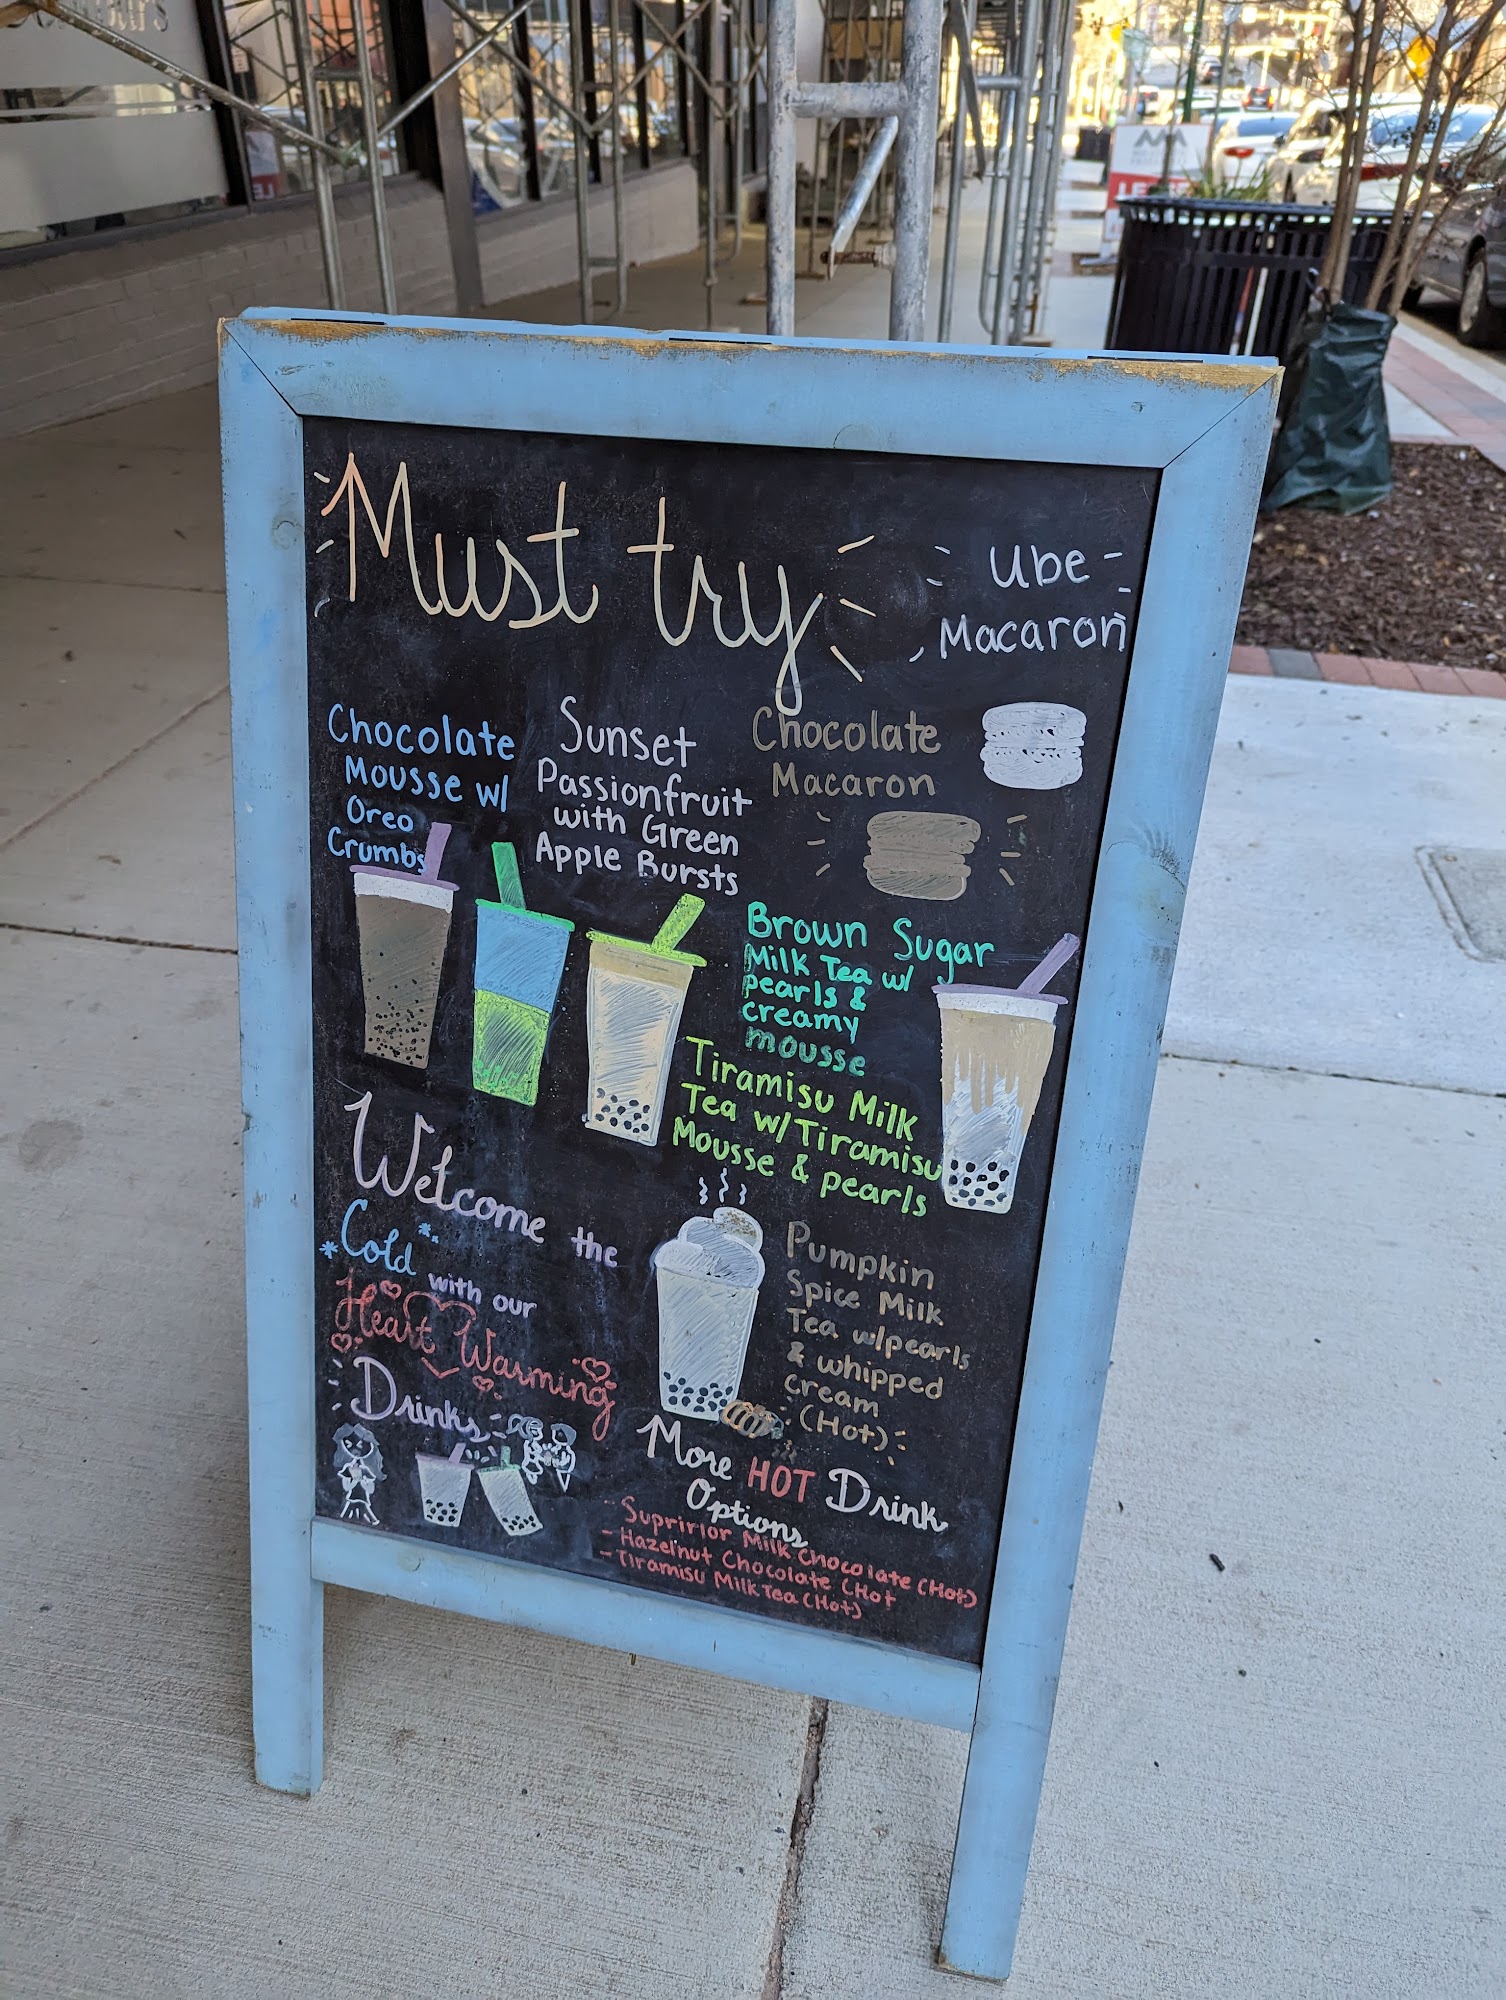 Must try
Ube
Macaron
Chocolate
Mousse w/
Oreo
Crumbs
Sunset
Passionfruit
with Green
Apple Bursts
Chocolate
Macaron
Brown Sugar
Milk Tea w/
pearls &
creamy
mousse
Tiramisu Milk
Tea w/Tiramisu
Mousse & pearls
Welcome the
Cold with our
Heart Warming
Drinks
Pumpkin
Spice Milk
Tea w/pearls
& whipped
cream
(Hot)
More HOT Drink
Options
- Supririor Milk Chocolate (Hot)
- Hazelnut Chocolate (Hot
- Tiramisu Milk Tea (Hot)